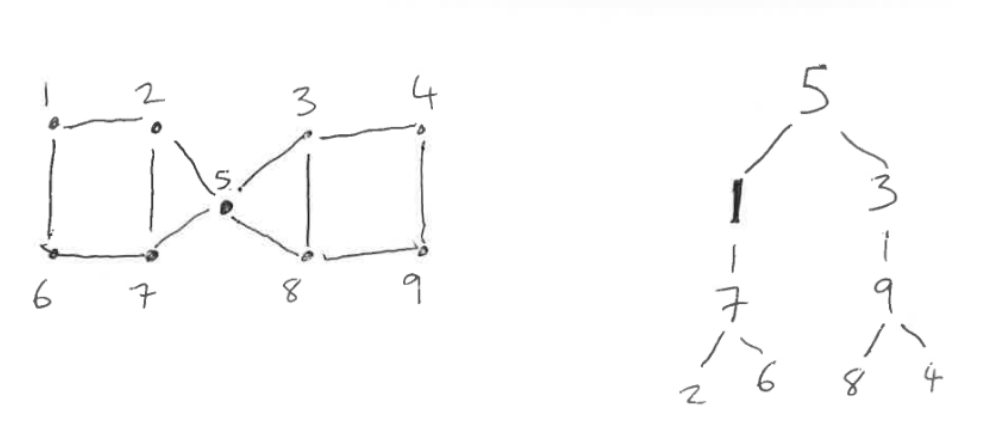 1 2 3 4
5
6 7 8 9
5
1 3
7 9
2 6 8 4